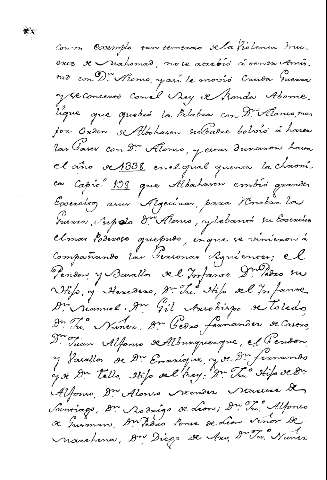 con un exemplo tan temprano de la Violenta mu-
erte de Mahomad, no se atrebió à tener Amis-
tad con Dn. Alonso, y asi le movió Cruda Guerra
y se concertó con el Rey de Ronda Abome-
lique que quebró la Palabra con Dn. Alonso, mas
por Orden de Albohacen su Padre bolvió à hacer
las Paces con Dn. Alonso, y estas duraron hasta
el año de 1338 en el qual quenta la Chroni-
ca Capio. 198 que Albohacen embió grandes
Exercitos a sus Algeciras, para
Guerra, Supolo Dn. Alonso, y juntando su Exercito
el mas Poderoso que pudo, en que se vinieron à
Compañando las Personas Siguientes; el
Pendon y Vasallos de el Infante Dn. Pedro su
Hijo, y Heredero, Dn. Juo. Hijo de el Infante
Dn. Manuel, Dn. Gil Arzobispo de Toledo
Dn. Juo. Nuñez, Dn. Pedro Fernandez de Castro
Dn. Juan Alfonso de Alburquerque, el Pendon
y Vasallos de Dn. Enrrique, y de Dn. Fernando
y de Dn. Tello, Hijos de el Rey; Dn. Juo. Hijo de Dn.
Alfonso, Dn. Alonso Mendez Maestre de
Santiago, Dn. Rodrigo de Leon; Dn. Juo. Alfonso
de Guzman, Dn. Pedro Ponce de Leon Señor de
Marchena, Dn. Diego de Aro, Dn. Juo. Nuñez